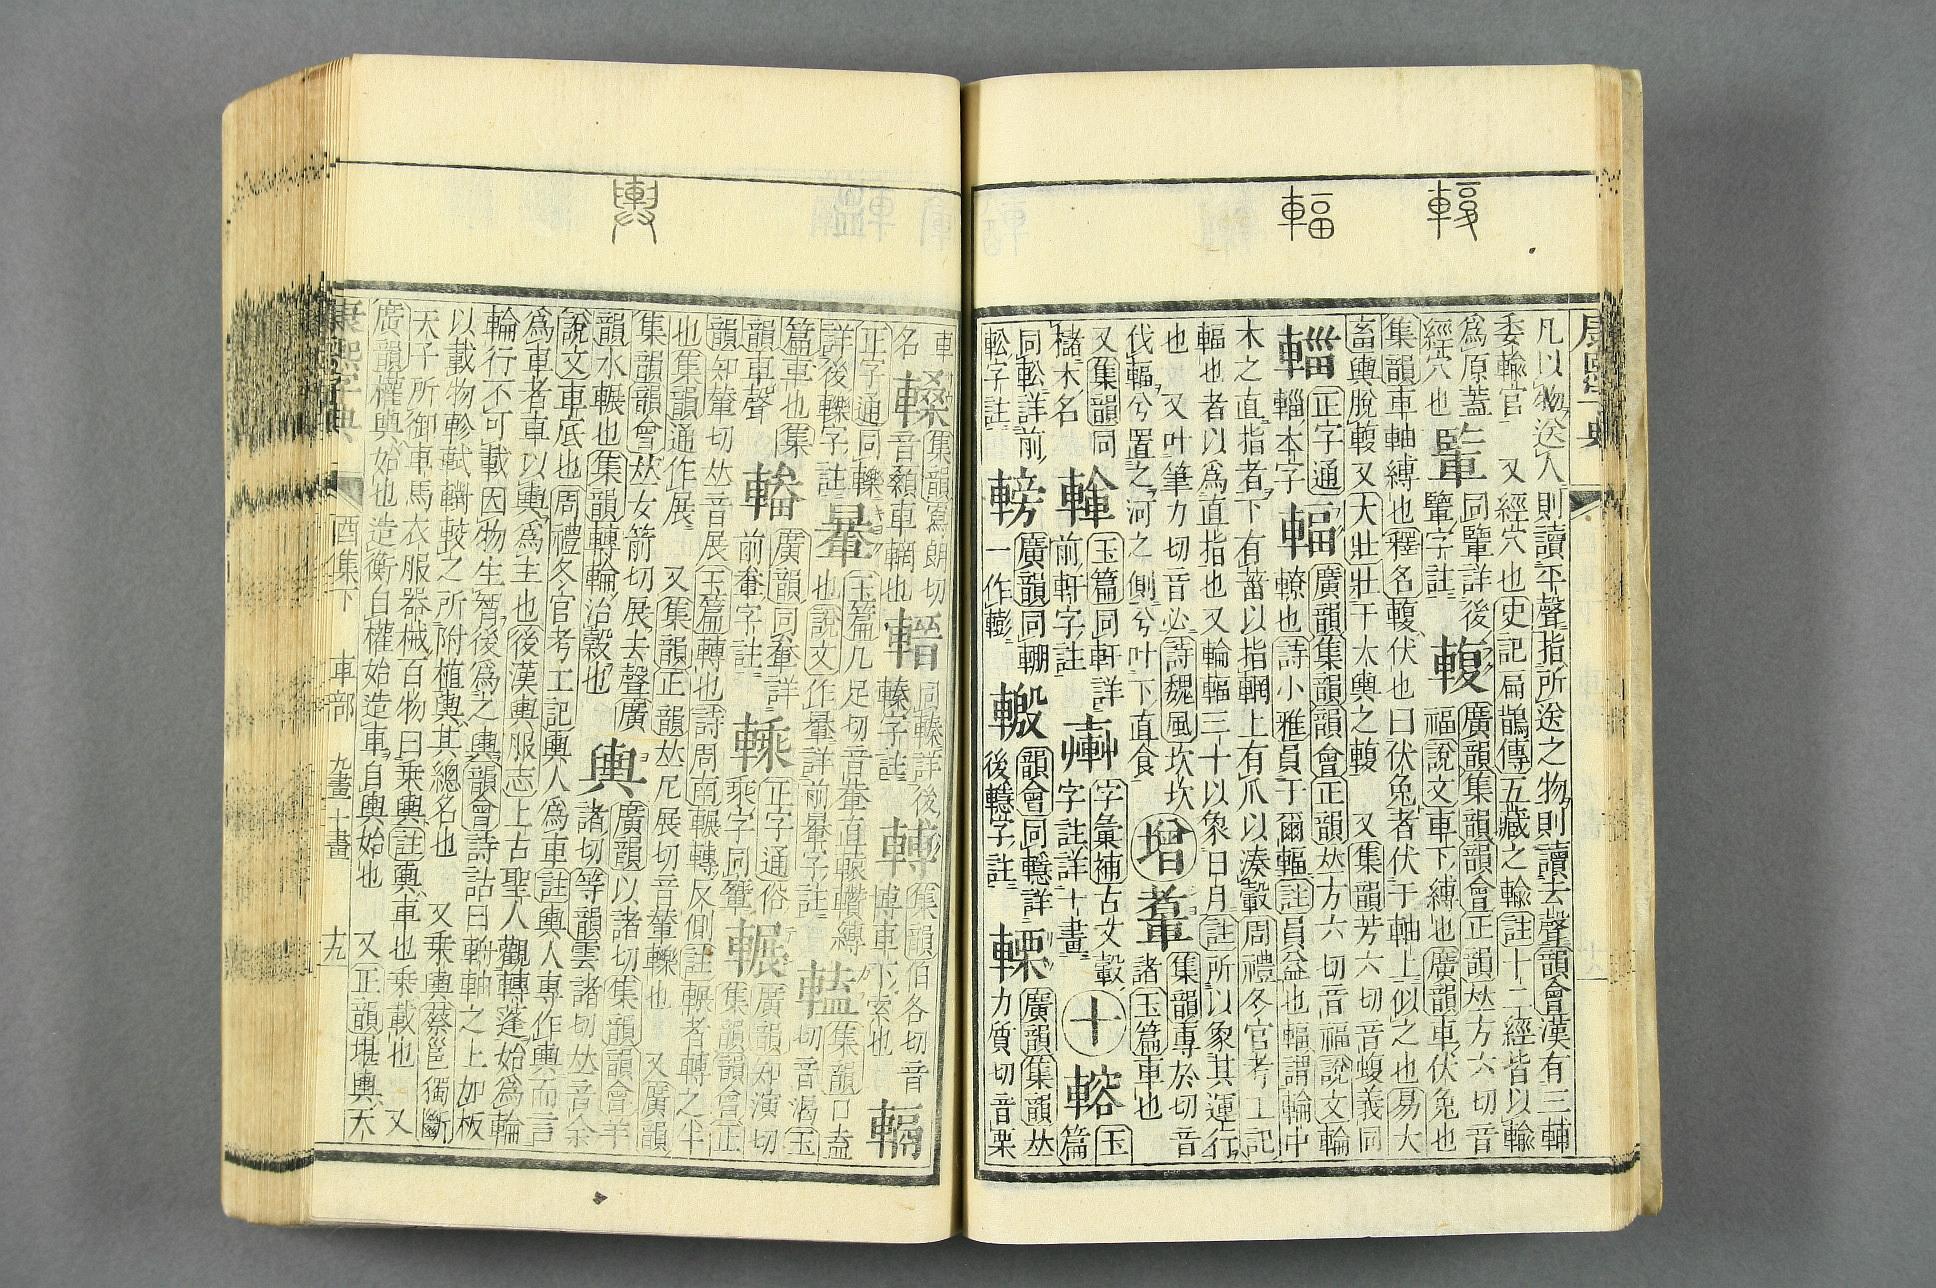 輹
輻
康熙字典
凡以物送人則讀平聲指所送之物則讀去聲韻會漢有三輔
委輸官 又經穴也史記扁鵲傳五藏之輸註十二經皆以輸
爲原蓋
經穴也
詳後
字註
輹
廣韻集韻韻會正韻𠀤方六切音
福說文車下縛也廣韻車伏兔也
集韻車軸縛也釋名輹伏也曰伏兔者伏于軸上似之也易大
畜輿脫輹又大壯壯于大輿之輹 又集韻芳六切音蝮義同
輺
正字通
輜本字
輻
廣韻集韻韻會正韻𠀤方六切音福說文輪
轑也詩小雅員于爾輻註員益也輻謂輪中
木之直指者下有菑以指輞上有爪以湊轂周禮冬官考工記
輻也者以爲直指也又輪輻三十以象日月註所以象其運行
也 又叶筆力切音必詩魏風坎坎
伐輻兮置之河之側兮叶下直食
增
集韻專於切音
諸玉篇車也
又集韻同
櫧木名
玉篇同軒詳
前軒字註
字彙補古文轂
字註詳十畫
十
玉
篇
詳前
字註
廣韻同輣
一作
韻會同
詳
後
字註
廣韻集韻𠀤
力質切音栗
輿
車
名
集韻寫朗切
音顙車輞也
同轃詳後
轃字註
集韻伯各切音
博車下索也
正字通同轢
詳後轢字註
玉篇几足切音
也說文作
詳前
字註
集韻口盍
切音溘玉
篇車也集
韻車聲
廣韻同軬詳
前軬字註
正字通俗
乘字同
輾
廣韻知演切
集韻韻會正
韻知輦切𠀤音展玉篇轉也詩周南輾轉反側註輾者轉之半
也集韻通作展 又集韻正韻𠀤尼展切音 轢也 又廣韻
集韻韻會𠀤女箭切展去聲廣
韻水輾也集韻轉輪治穀也
輿
廣韻以諸切集韻韻會羊
諸切等韻雲諸切𠀤音余
說文車底也周禮冬官考工記輿人爲車註輿人專作輿而言
爲車者車以輿爲主也後漢輿服志上古聖人觀轉蓬始爲輪
輪行不可載因物生智後爲之輿韻會詩詁曰輈軸之上加板
以載物軫軾輢較之所附植輿其總名也 又乘輿蔡邕獨斷
天子所御車馬衣服器械百物曰乘輿註輿車也乘載也 又
廣韻權輿始也造衡自權始造車自輿始也 又正韻堪輿天
康熙字典 酉集下 車部 九畫十畫 十九